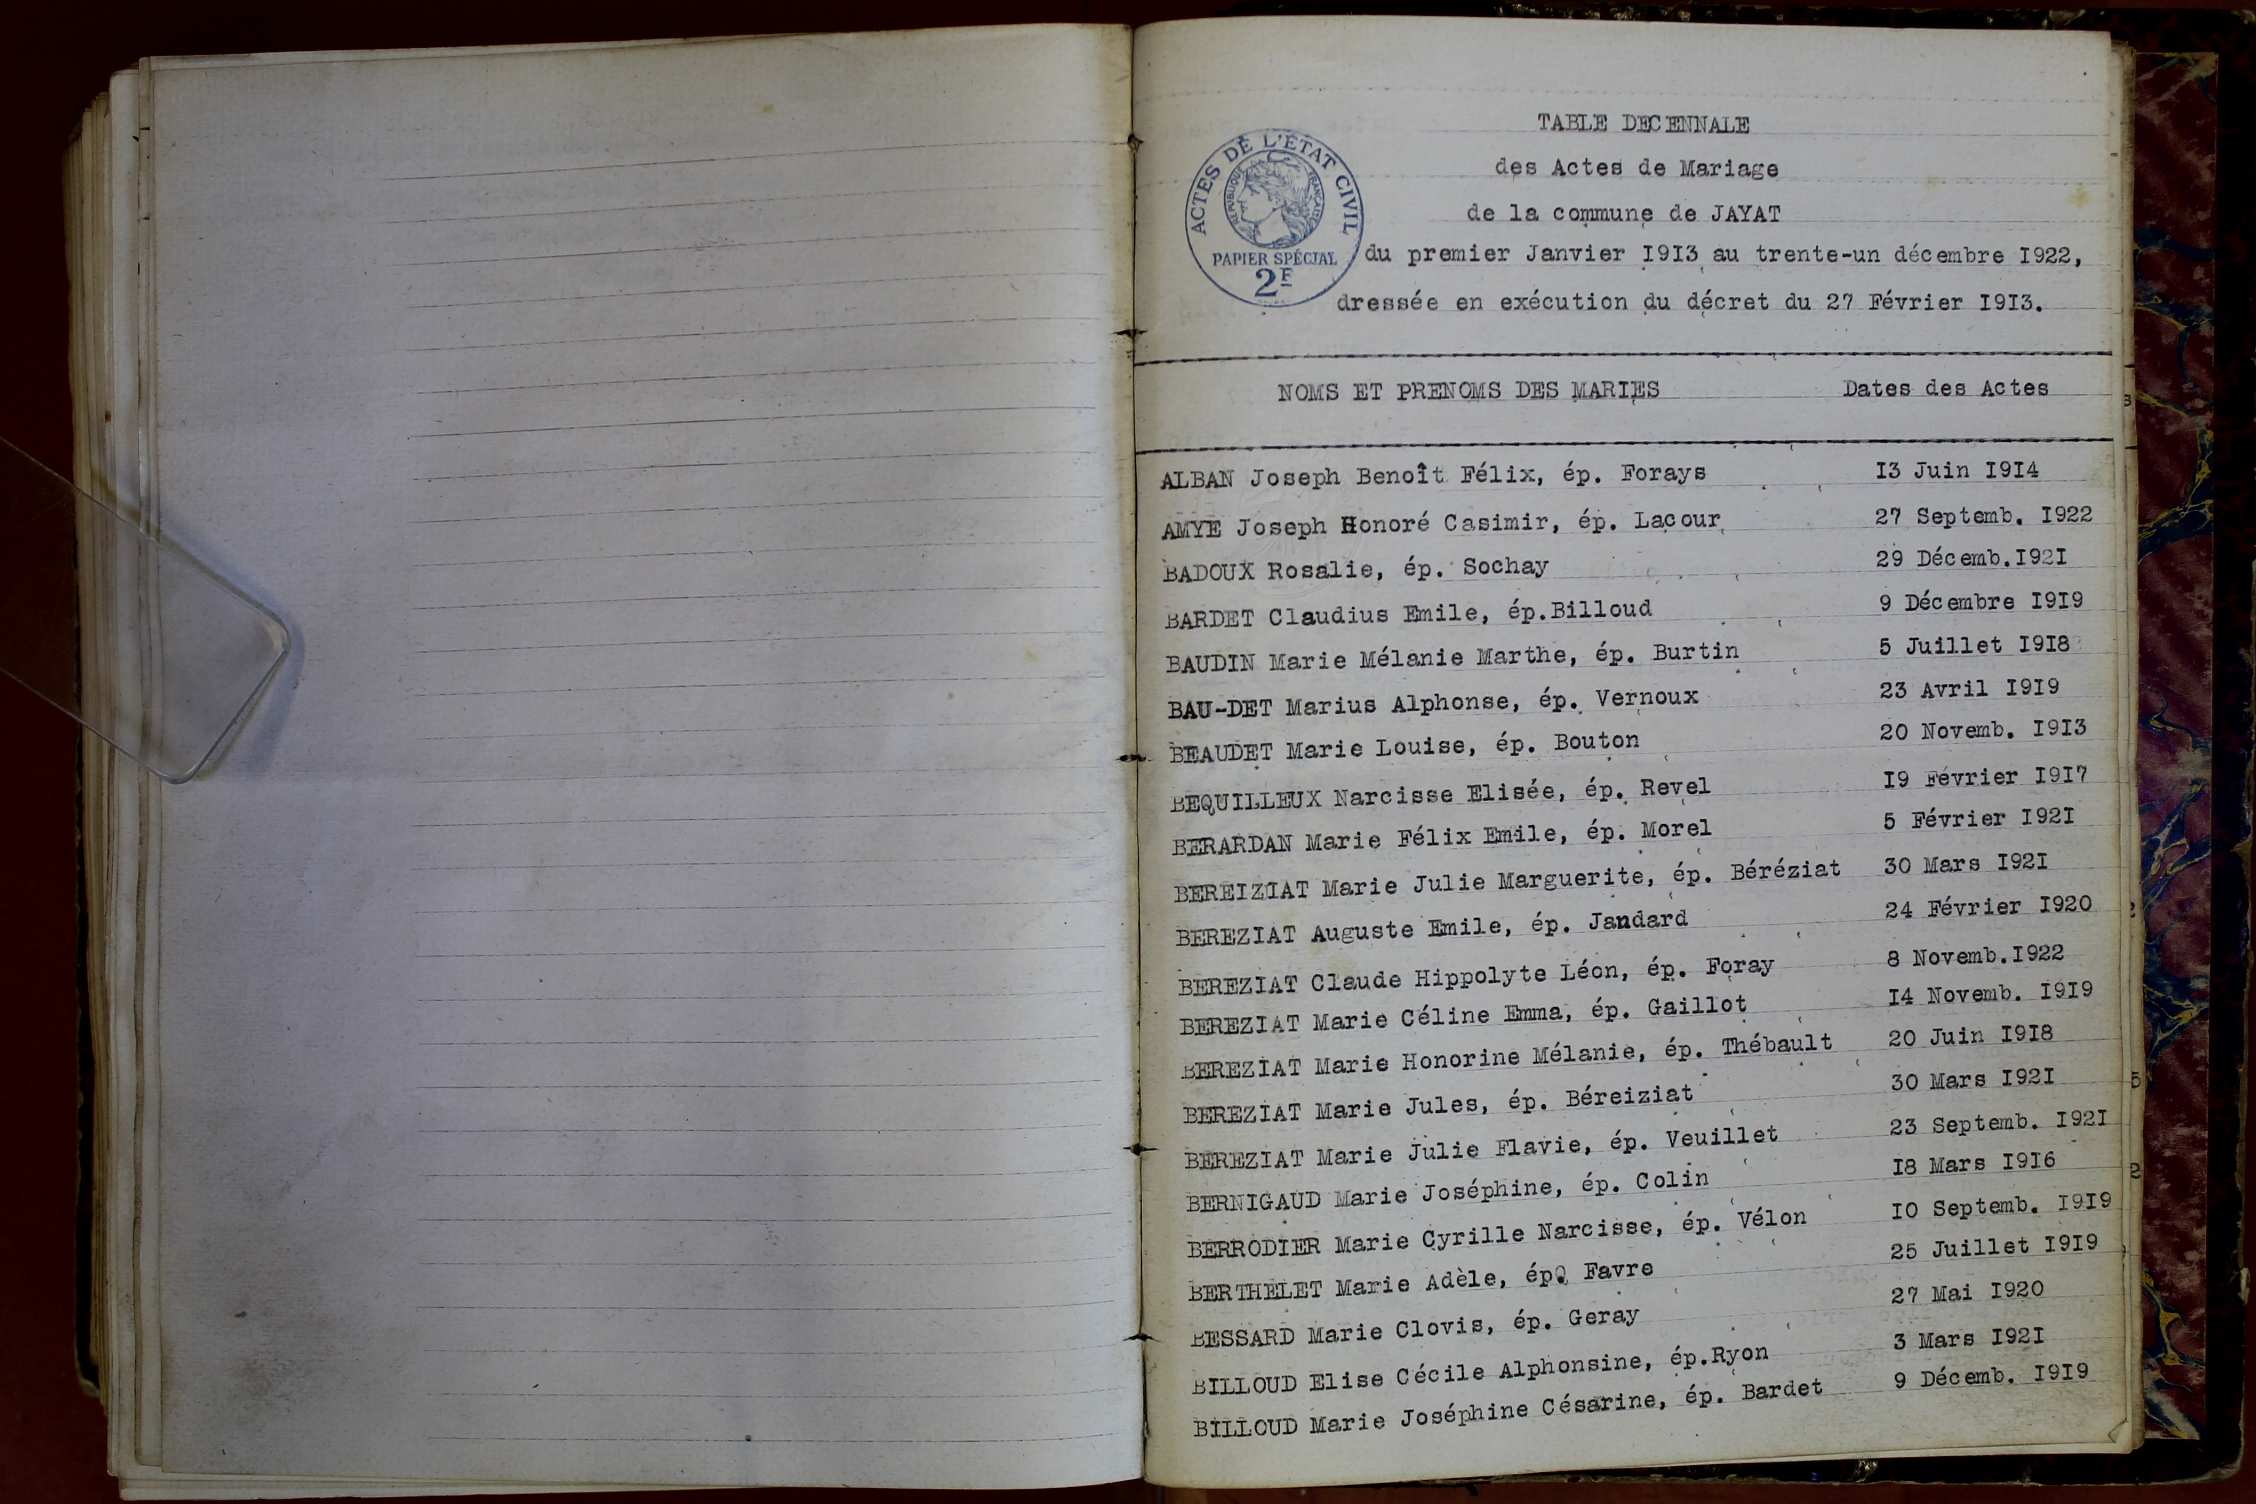 ACTES DE L'ÉTAT CIVIL
RÉPUBLIQUE FRANÇAISE
PAPIER SPÉCIAL
2F
TABLE DECENNALE
des Actes de Mariage
de la commune de JAYAT
du premier Janvier I9I3 au trente-un décembre I922,
dressée en exécution du décret du 27 Février I9I3.
NOMS ET PRENOMS DES MARIES Dates des Actes
ALBAN Joseph Benoît Félix, ép. Forays I3 Juin I9I4
AMYE Joseph Honoré Casimir, ép. Lacour 27 Septemb. I922
BADOUX Rosalie, ép. Sochay 29 Décemb.I92I
BARDET Claudius Emile, ép.Billoud 9 Décembre I9I9
BAUDIN Marie Mélanie Marthe, ép. Burtin 5 Juillet I9I8
BAU-DET Marius Alphonse, ép. Vernoux 23 Avril I9I9
BEAUDET Marie Louise, ép. Bouton 20 Novemb. I9I3
BEQUILLEUX Narcisse Elisée, ép. Revel I9 Février I9I7
BERARDAN Marie Félix Emile, ép. Morel 5 Février I92I
BEREIZIAT Marie Julie Marguerite, ép. Béréziat 30 Mars I92I
BEREZIAT Auguste Emile, ép. Jandard 24 Février I920
BEREZIAT Claude Hippolyte Léon, ép. Foray 8 Novemb.I922
BEREZIAT Marie Céline Emma, ép. Gaillot I4 Novemb. I9I9
BEREZIAT Marie Honorine Mélanie, ép. Thébault 20 Juin I9I8
BEREZIAT Marie Jules, ép. Béreiziat 30 Mars I92I
BEREZIAT Marie Julie Flavie, ép. Veuillet 23 Septemb. I92I
BERNIGAUD Marie Joséphine, ép. Colin I8 Mars I9I6
BERRODIER Marie Cyrille Narcisse, ép. Vélon IO Septemb. I9I9
BERTHELET Marie Adèle, ép. Favre 25 Juillet I9I9
BESSARD Marie Clovis, ép. Geray 27 Mai I920
BILLOUD Elise Cécile Alphonsine, ép.Ryon 3 Mars I92I
BILLOUD Marie Joséphine Césarine, ép. Bardet 9 Décemb. I9I9